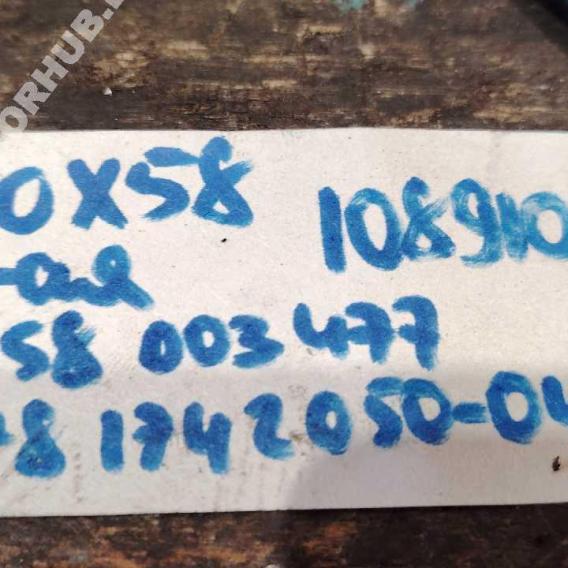 ORHUB.
0X58 108910
58 003477
8 1742050-04